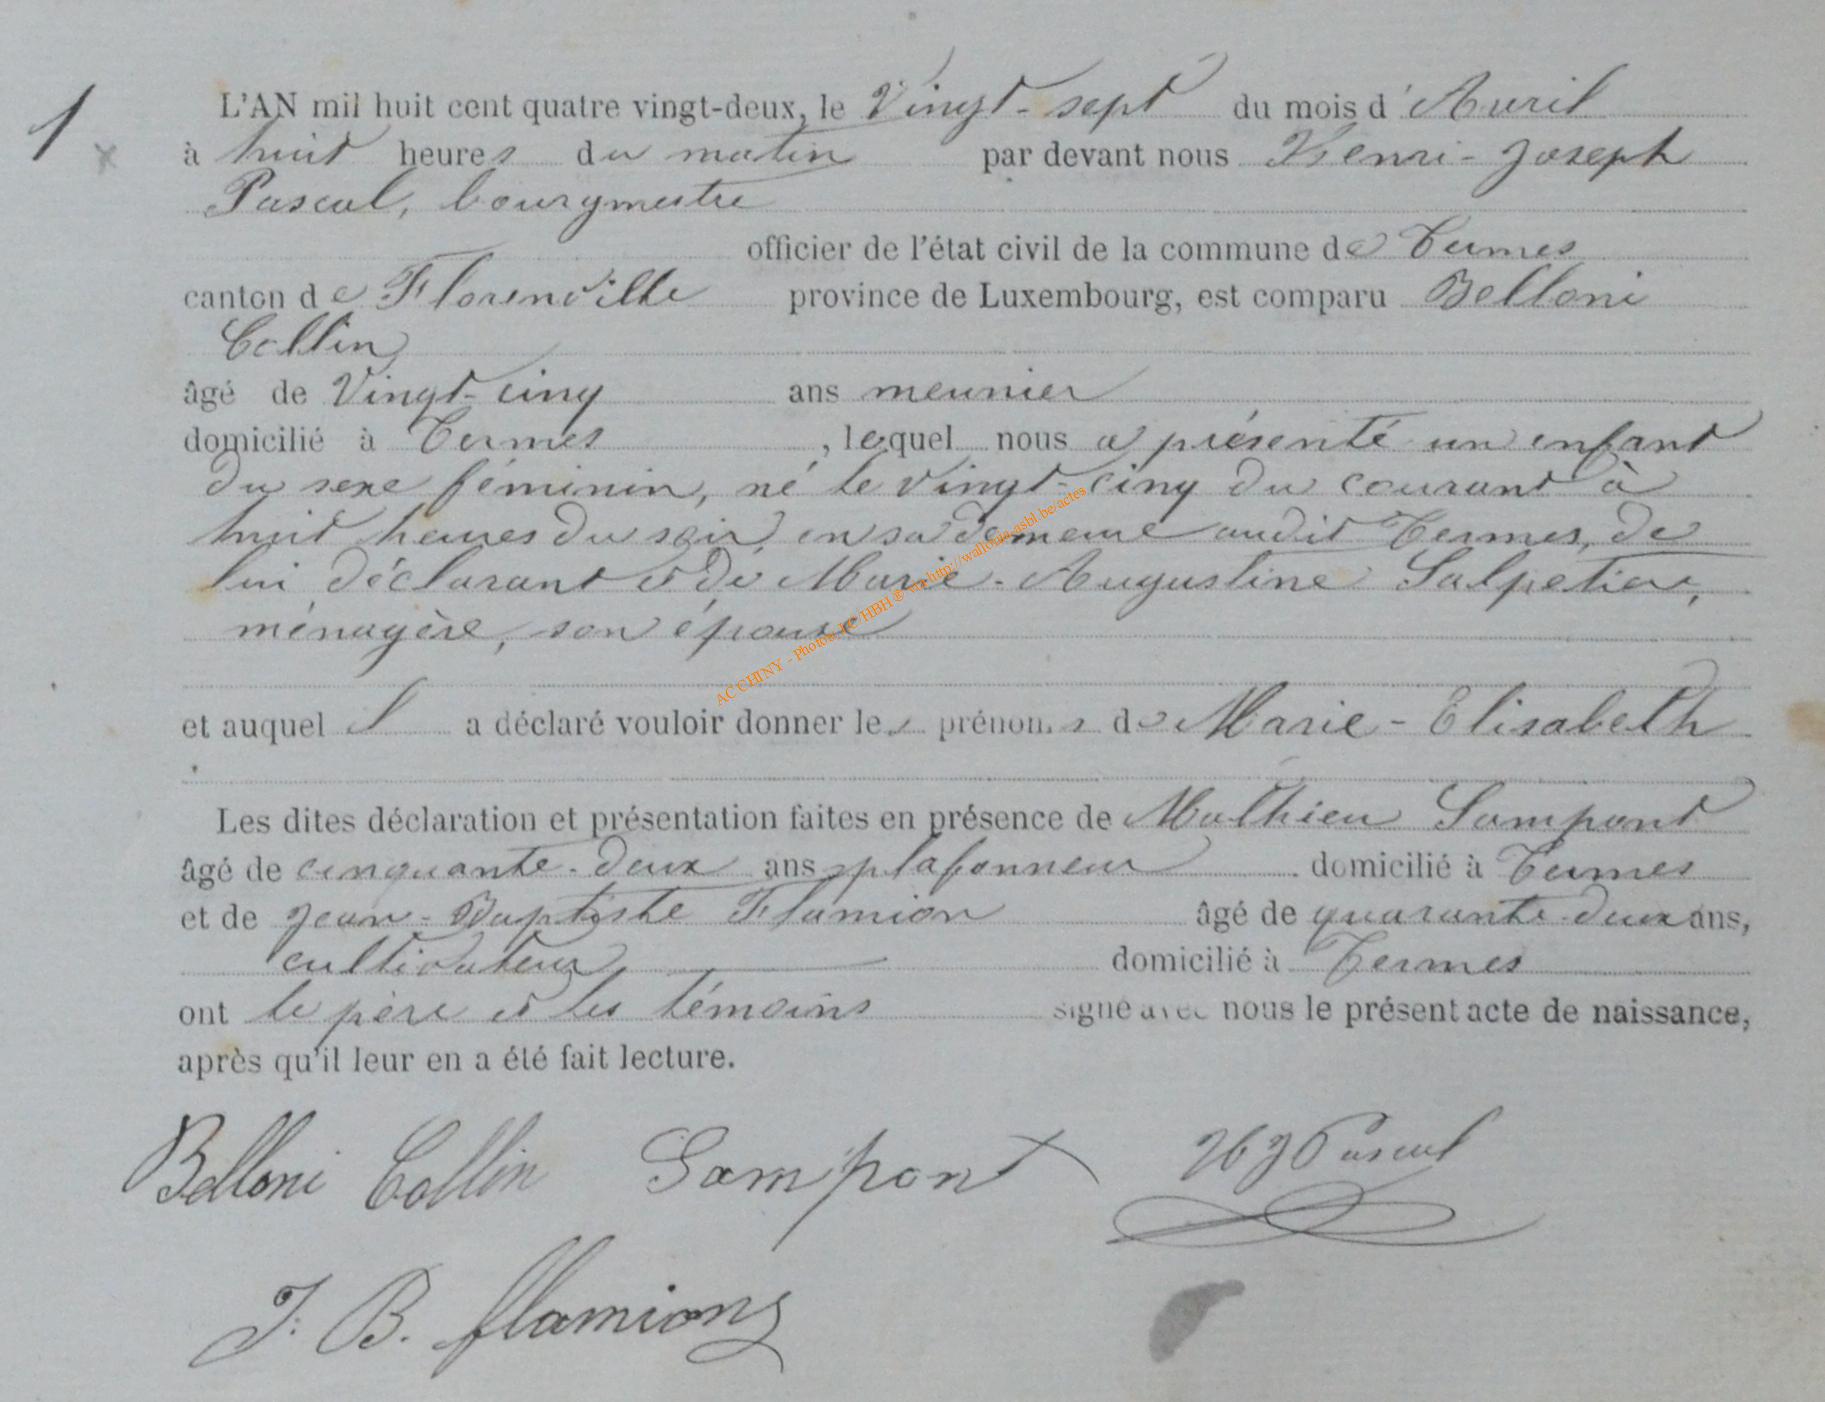 1
L'AN mil huit cent quatre vingt-deux, le Vingt-sept du mois d'Avril
à huit heures du matin par devant nous Henri-Joseph
Pascal, bourgmestre
officier de l'état civil de la commune de Termes
canton de Florenville province de Luxembourg, est comparu Belloni
Collin
âgé de Vingt-cinq ans meunier
domicilié à Termes, lequel nous a présenté un enfant
du sexe féminin, né le vingt-cinq du courant à
huit heures du soir, en sa demeure audit Termes, de
lui déclarant et de Marie-Augustine Salpetier,
ménagère, son épouse
et auquel il a déclaré vouloir donner les prénoms de Marie-Elisabeth
Les dites déclaration et présentation faites en présence de Mathieu Sampont
âgé de cinquante-deux ans plafonneur domicilié à Termes
et de Jean-Baptiste Flamion âgé de quarante-deux ans,
cultivateur domicilié à Termes
ont le père et les témoins signé avec nous le présent acte de naissance,
après qu'il leur en a été fait lecture.
Belloni Collin Sampont HJPascal
J. B. flamion
AC CHINY - Photos HBH © http://wallonia-asbl.be/actes